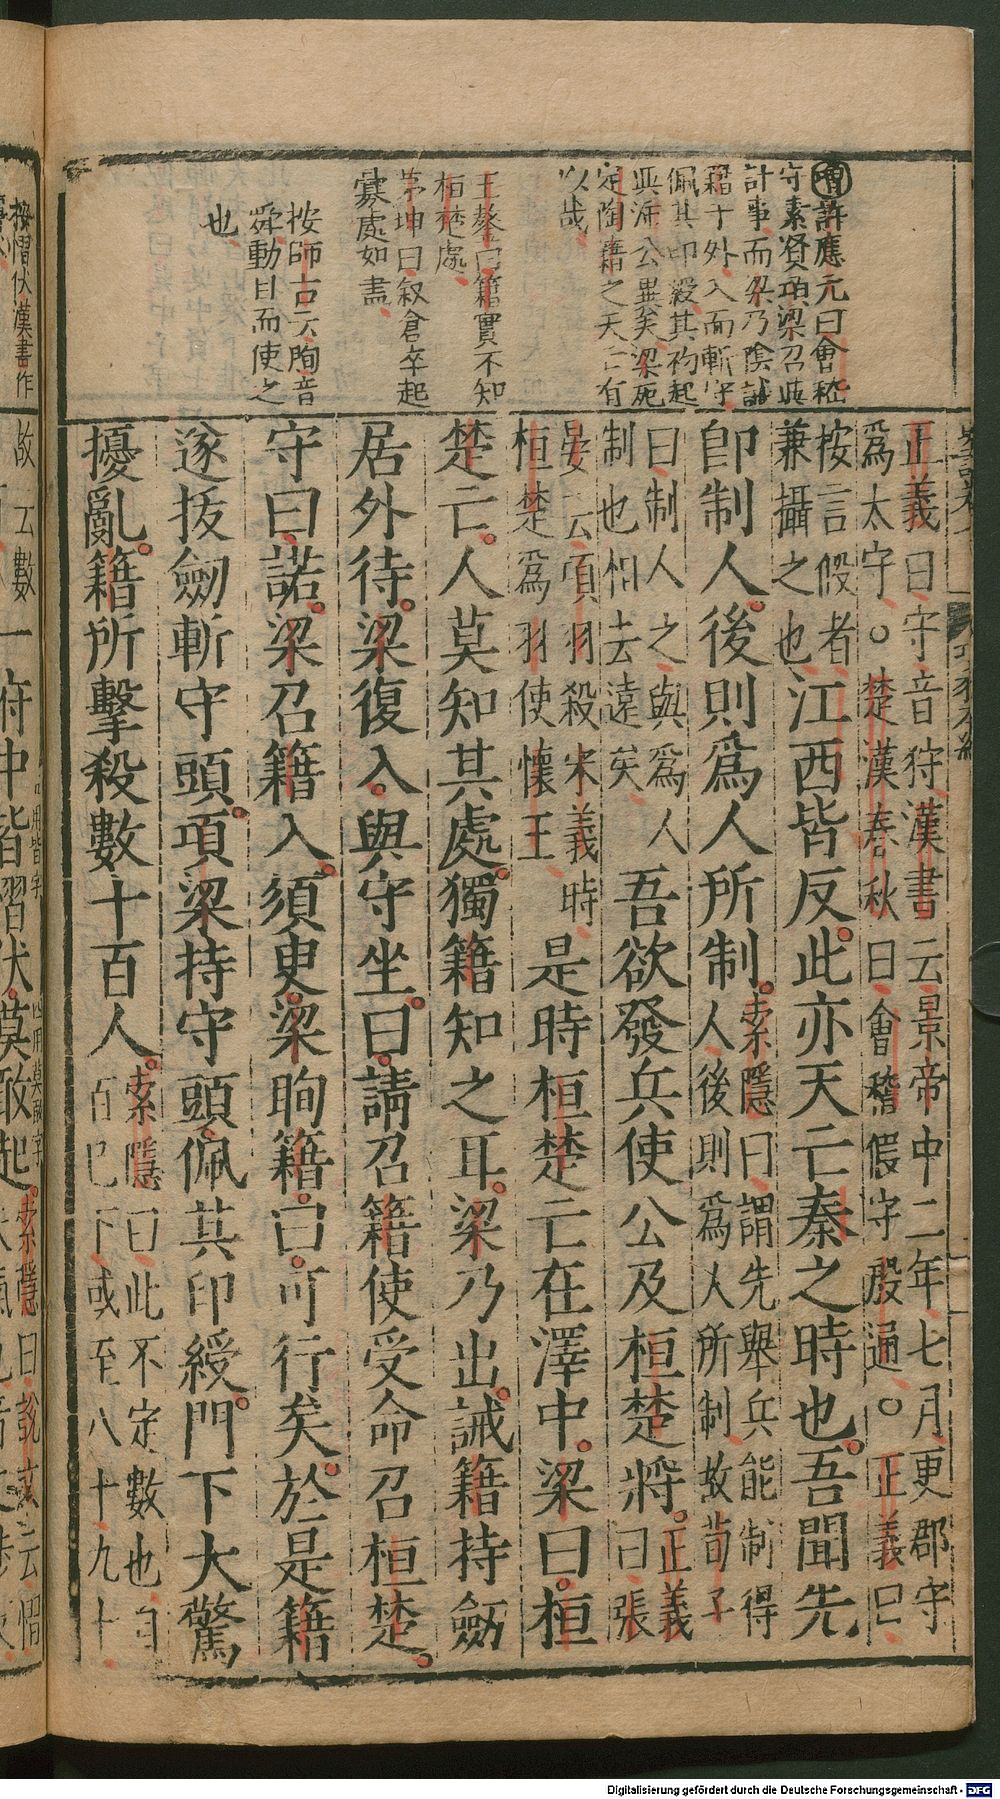 增許應元曰會稽
守素賢項梁召與
計事而梁乃陰誡
籍于外入而斬守
佩其印綬其初起
與沛公異矣梁死
定陶籍之天亡有
以哉
王鏊曰籍實不知
桓楚處
茅坤曰叙倉卒起
釁處如畫
按師古云眴音
舜動目而使之
也
正義曰守音狩漢書云景帝中二年七月更郡守
爲太守○楚漢春秋曰會稽假守殷通○正義曰
按言假者
兼攝之也
江西皆反此亦天亡秦之時也吾聞先
卽制人後則爲人所制
索隱曰謂先舉兵能制得
人後則爲人所制故荀子
曰制人之與爲人
制也相去遠矣
吾欲發兵使公及桓楚將
正義
曰張
晏云項羽殺宋義時
桓楚爲羽使懷王
是時桓楚亡在澤中梁曰桓
楚亡人莫知其處獨籍知之耳梁乃出誡籍持劒
居外待梁復入與守坐曰請召籍使受命召桓楚
守曰諾梁召籍入須臾梁眴籍曰可行矣於是籍
遂拔劒斬守頭項梁持守頭佩其印綬門下大驚
擾亂籍所擊殺數十百人
索隱曰此不定數也自
百已下或至八十九十
按慴伏漢書作
故云數
一府中皆慴伏莫敢起
索隱曰說文云慴
四用莫敢字
Digitalisierung gefördert durch die Deutsche Forschungsgemeinschaft - DFG